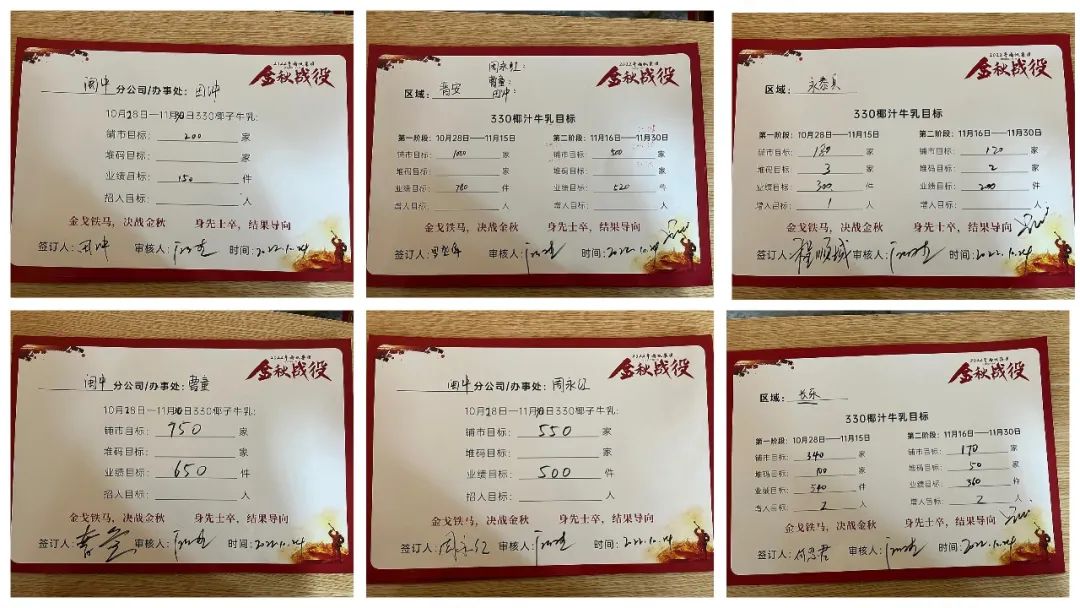 2022年
金秋战役
闽中 分公司/办事处: 田冲
10月28日—11月30日330椰子牛乳:
铺市目标: 200 家
堆码目标: 家
业绩目标: 150 件
招人目标: 人
金戈铁马, 决战金秋 身先士卒, 结果导向
签订人: 田冲 审核人: 时间: 2022.10.24
2022年
金秋战役
周永红:
曹童:
田冲:
区域: 晋安
330椰汁牛乳目标
第一阶段: 10月28日——11月15日 第二阶段: 11月16日——11月30日
铺市目标: 1000 家 铺市目标: 500 家
堆码目标: 家 堆码目标: 家
业绩目标: 780 件 业绩目标: 520 件
增人目标: 人 增人目标: 人
金戈铁马, 决战金秋 身先士卒, 结果导向
签订人: 审核人: 时间: 2022.10.24
2022年
金秋战役
区域: 永泰县
330椰汁牛乳目标
第一阶段: 10月28日——11月15日 第二阶段: 11月16日——11月30日
铺市目标: 180 家 铺市目标: 120 家
堆码目标: 3 家 堆码目标: 2 家
业绩目标: 300 件 业绩目标: 200 件
增人目标: 1 人 增人目标: 人
金戈铁马, 决战金秋 身先士卒, 结果导向
签订人: 程顺城 审核人: 时间: 2022.10.24
2022年
金秋战役
闽中 分公司/办事处: 曹童
10月28日—11月30日330椰子牛乳:
铺市目标: 750 家
堆码目标: 家
业绩目标: 650 件
招人目标: 人
金戈铁马, 决战金秋 身先士卒, 结果导向
签订人: 曹童 审核人: 时间: 2022.10.24
2022年
金秋战役
闽中 分公司/办事处: 周永红
10月28日—11月30日330椰子牛乳:
铺市目标: 550 家
堆码目标: 家
业绩目标: 500 件
招人目标: 人
金戈铁马, 决战金秋 身先士卒, 结果导向
签订人: 周永红 审核人: 时间: 2022.10.24
2022年
金秋战役
区域: 长乐
330椰汁牛乳目标
第一阶段: 10月28日——11月15日 第二阶段: 11月16日——11月30日
铺市目标: 340 家 铺市目标: 170 家
堆码目标: 100 家 堆码目标: 50 家
业绩目标: 540 件 业绩目标: 360 件
增人目标: 2 人 增人目标: 2 人
金戈铁马, 决战金秋 身先士卒, 结果导向
签订人: 审核人: 时间: 2022.10.24